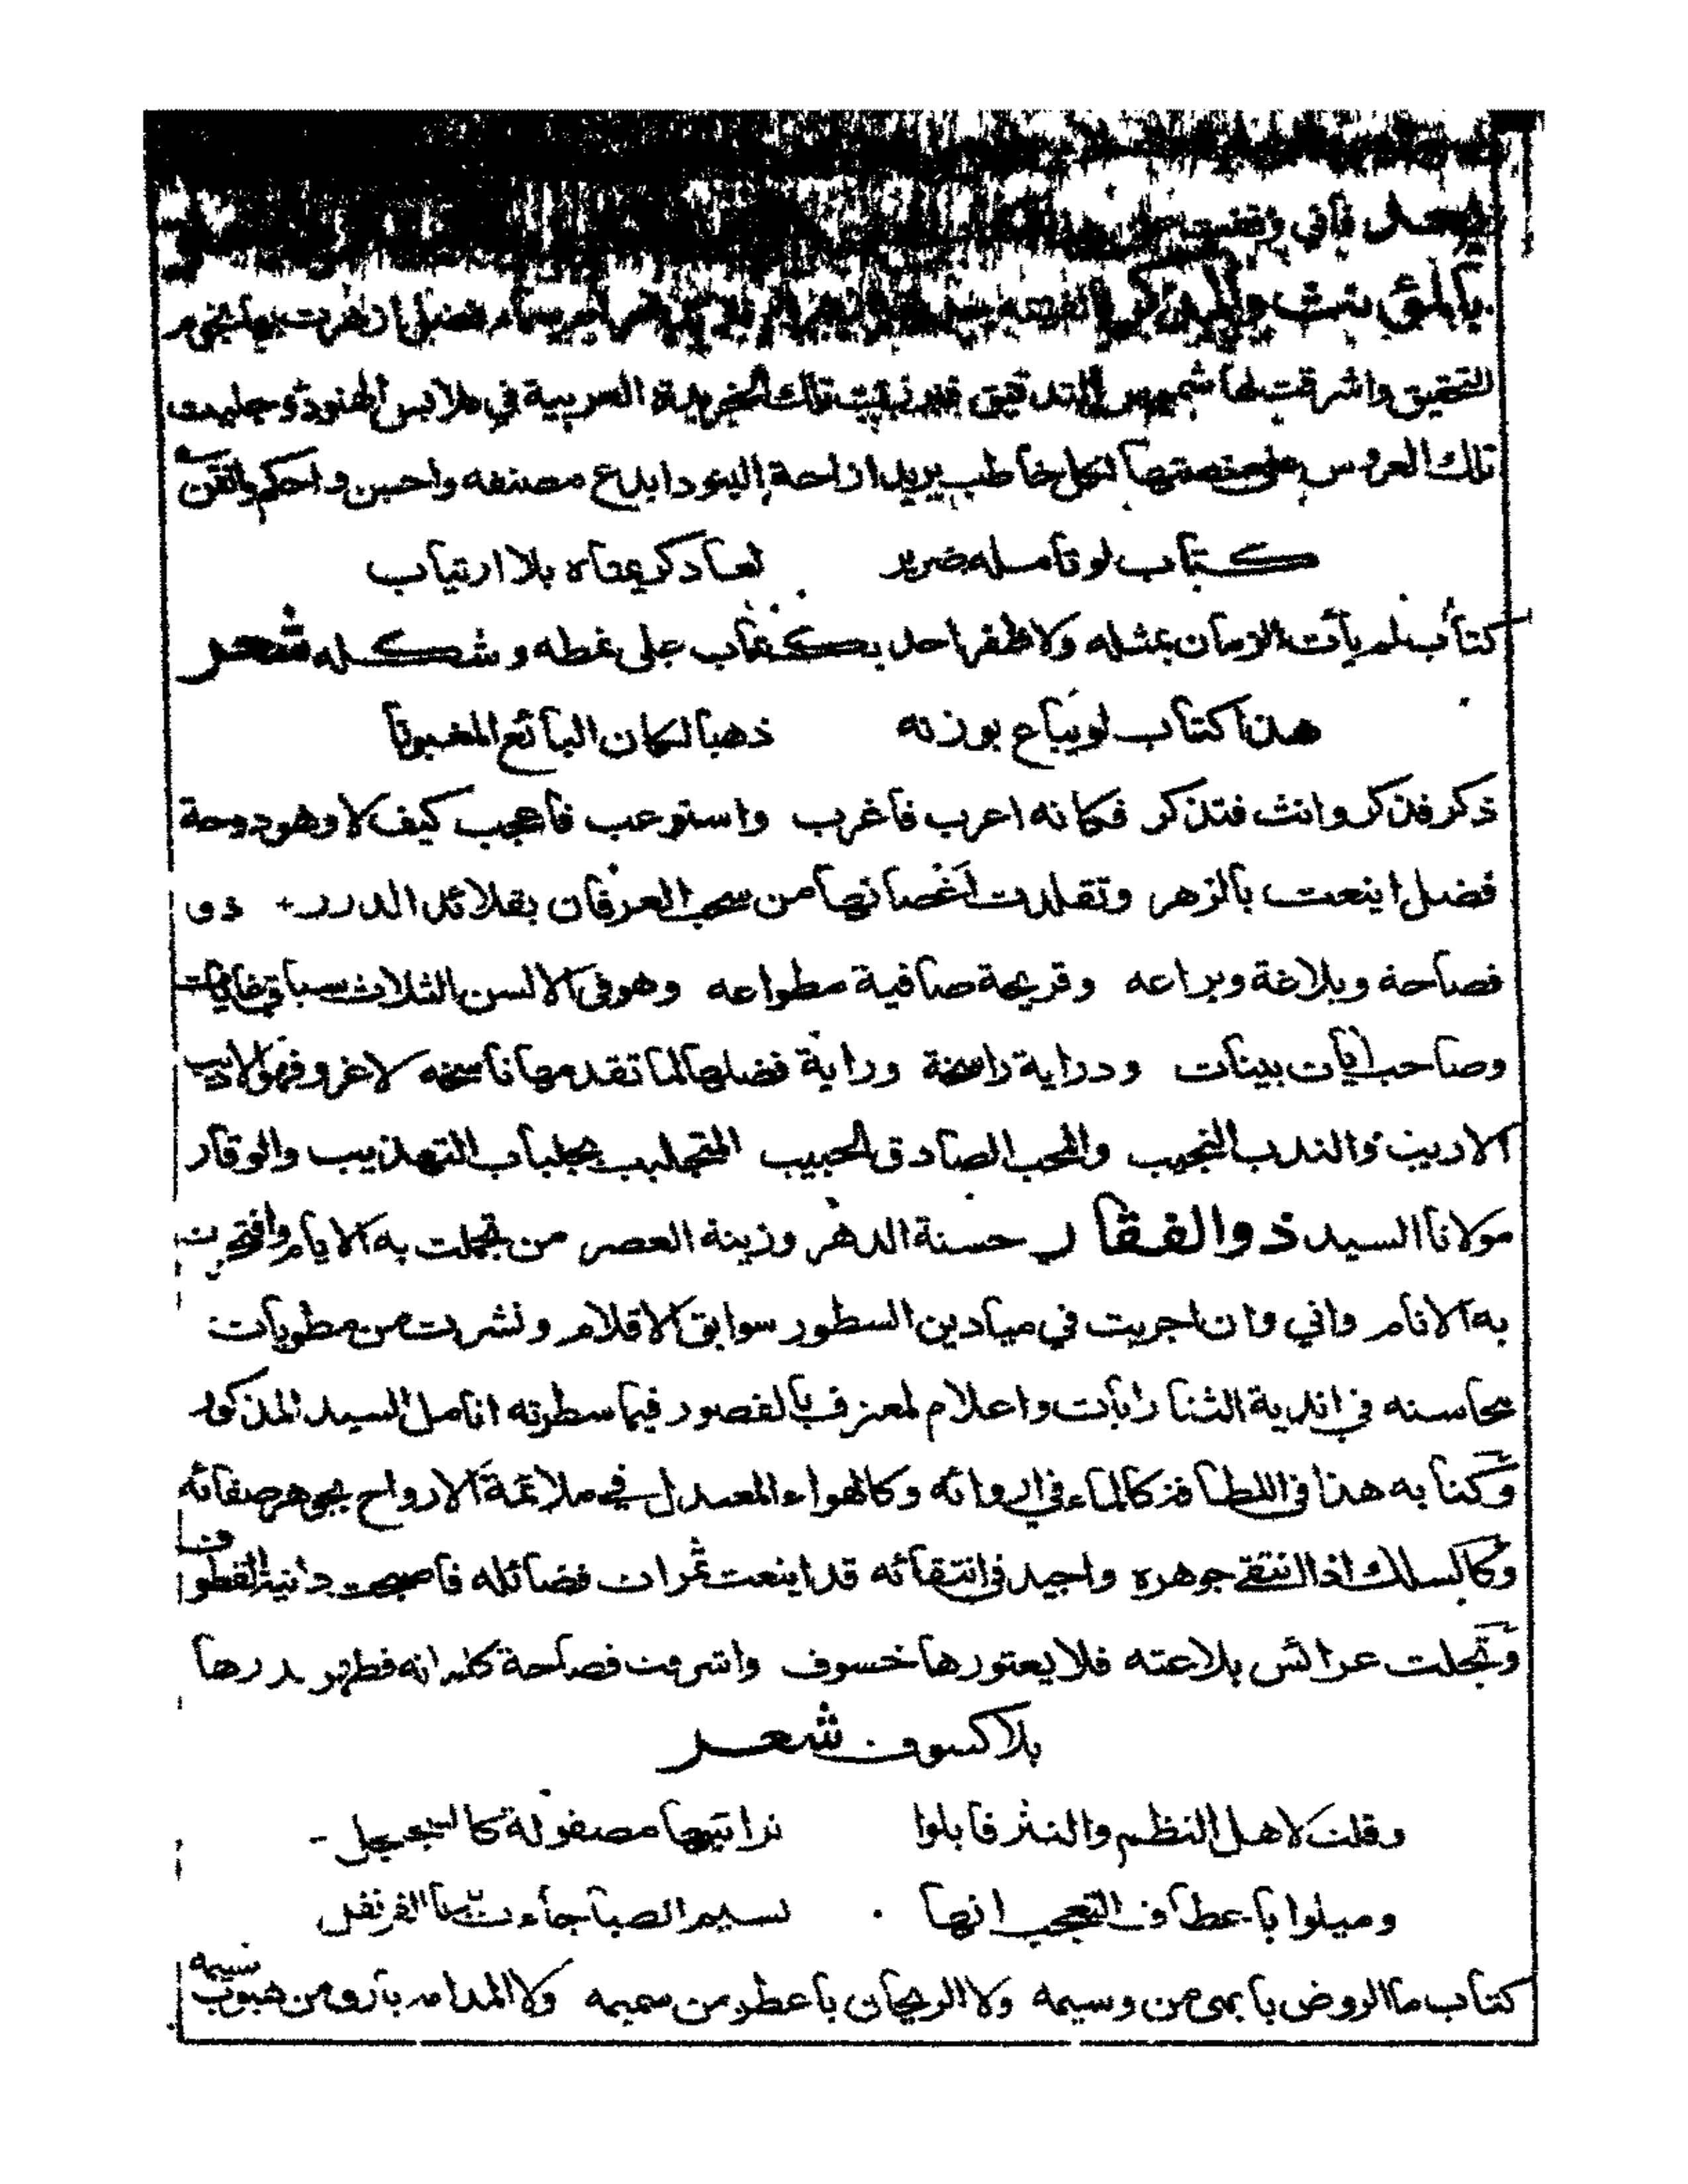 فاني وقفت
بالمؤنث والمذكر سماء فضل ازهرت بها نجوم
التحقيق واشرقت لها شموس التدقيق تلك الخريدة العربية في ملابس الهنود وجليت
تلك العروس على منصتها لكل خاطب يريد ازاحة البنود ابدع مصنفه واحسن واحكم واتقن
كتاب لو تامله ضرير لعاد كريمتاه بلا ارتياب
كتاب لم يأت الزمان بمثله ولا ظفر احد بكتاب على نمطه وشكله شعر
هذا كتاب لو يباع بوزنه ذهبا لكان البائع المغبونا
ذكر فذكر وانث فتذكر فكانه اعرب فاغرب واستوعب فاعجب كيف لا وهو دوحة
فضل اينعت بالزهر وتقلدت اغصانها من سحب العرفان بقلائد الدرر ذو
فصاحة وبلاغة وبراعه وقريحة صافية مطواعه وهو في الالسن الثلاث سباق غايات
وصاحب ايات بينات ودراية راسخة وراية فضلها لما تقدمها ناسخه لا غرو فهو الاديب
الاريب والندب النجيب والمحب الصادق الحبيب المتجلبب بجلباب التهذيب والوقار
مولانا السيد ذو الفقار حسنة الدهر وزينة العصر من تجملت به الايام وافتخرت
به الانام واني وان اجريت في ميادين السطور سوابق الاقلام ونشرت من مطويات
محاسنه في اندية الثنا رايات واعلام لمعترف بالقصور فيما سطرته انامل السيد المذكور
وكتابه هذا في اللطافة كالماء في اروائه وكالهواء المعتدل في ملائمة الارواح بجوهر صفائه
وكالسلك اذا انتقى جوهره واجيد في انتقائه قد اينعت ثمرات فضائله فاصبحت دانية القطوف
وتجلت عرائس بلاغته فلا يعتورها خسوف واشرقت فصاحة كلماته فظهر بدرها
بلا كسوف شعر
وقلت لاهل النظم والنثر قابلوا ترائبها مصقولة كالسجنجل
وميلوا باعطاف التعجب انها نسيم الصبا جاءت بريا القرنفل
كتاب ما الروض بابهى من وسيمه ولا الريحان باعطر من شميمه ولا المدام بارق من هبوب نسيمه